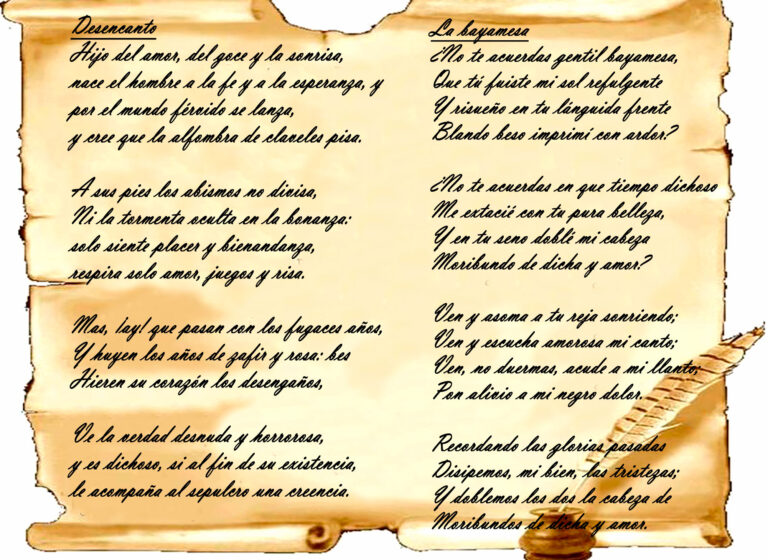 Desencanto
Hijo del amor, del goce y la sonrisa,
nace el hombre a la fe y a la esperanza, y
por el mundo férvido se lanza,
y cree que la alfombra de claveles pisa.
A sus pies los abismos no divisa,
Ni la tormenta oculta en la bonanza:
solo siente placer y bienandanza,
respira solo amor, juegos y risa.
Mas, !ay! que pasan con los fugaces años,
Y huyen los años de zafir y rosa: bes
Hieren su corazón los desengaños,
Ve la verdad desnuda y horrorosa,
y es dichoso, si al fin de su existencia,
le acompaña al sepulcro una creencia.
La bayamesa
¿No te acuerdas gentil bayamesa,
Que tú fuiste mi sol refulgente
Y risueño en tu lánguida frente
Blando beso imprimí con ardor?
¿No te acuerdas en que tiempo dichoso
Me extacié con tu pura belleza,
Y en tu seno doblé mi cabeza
Moribundo de dicha y amor?
Ven y asoma a tu reja sonriendo;
Ven y escucha amorosa mi canto;
Ven, no duermas, acude a mi llanto;
Pon alivio a mi negro dolor.
Recordando las glorias pasadas
Disipemos, mi bien, las tristezas;
Y doblemos los dos la cabeza de
Moribundos de dicha y amor.